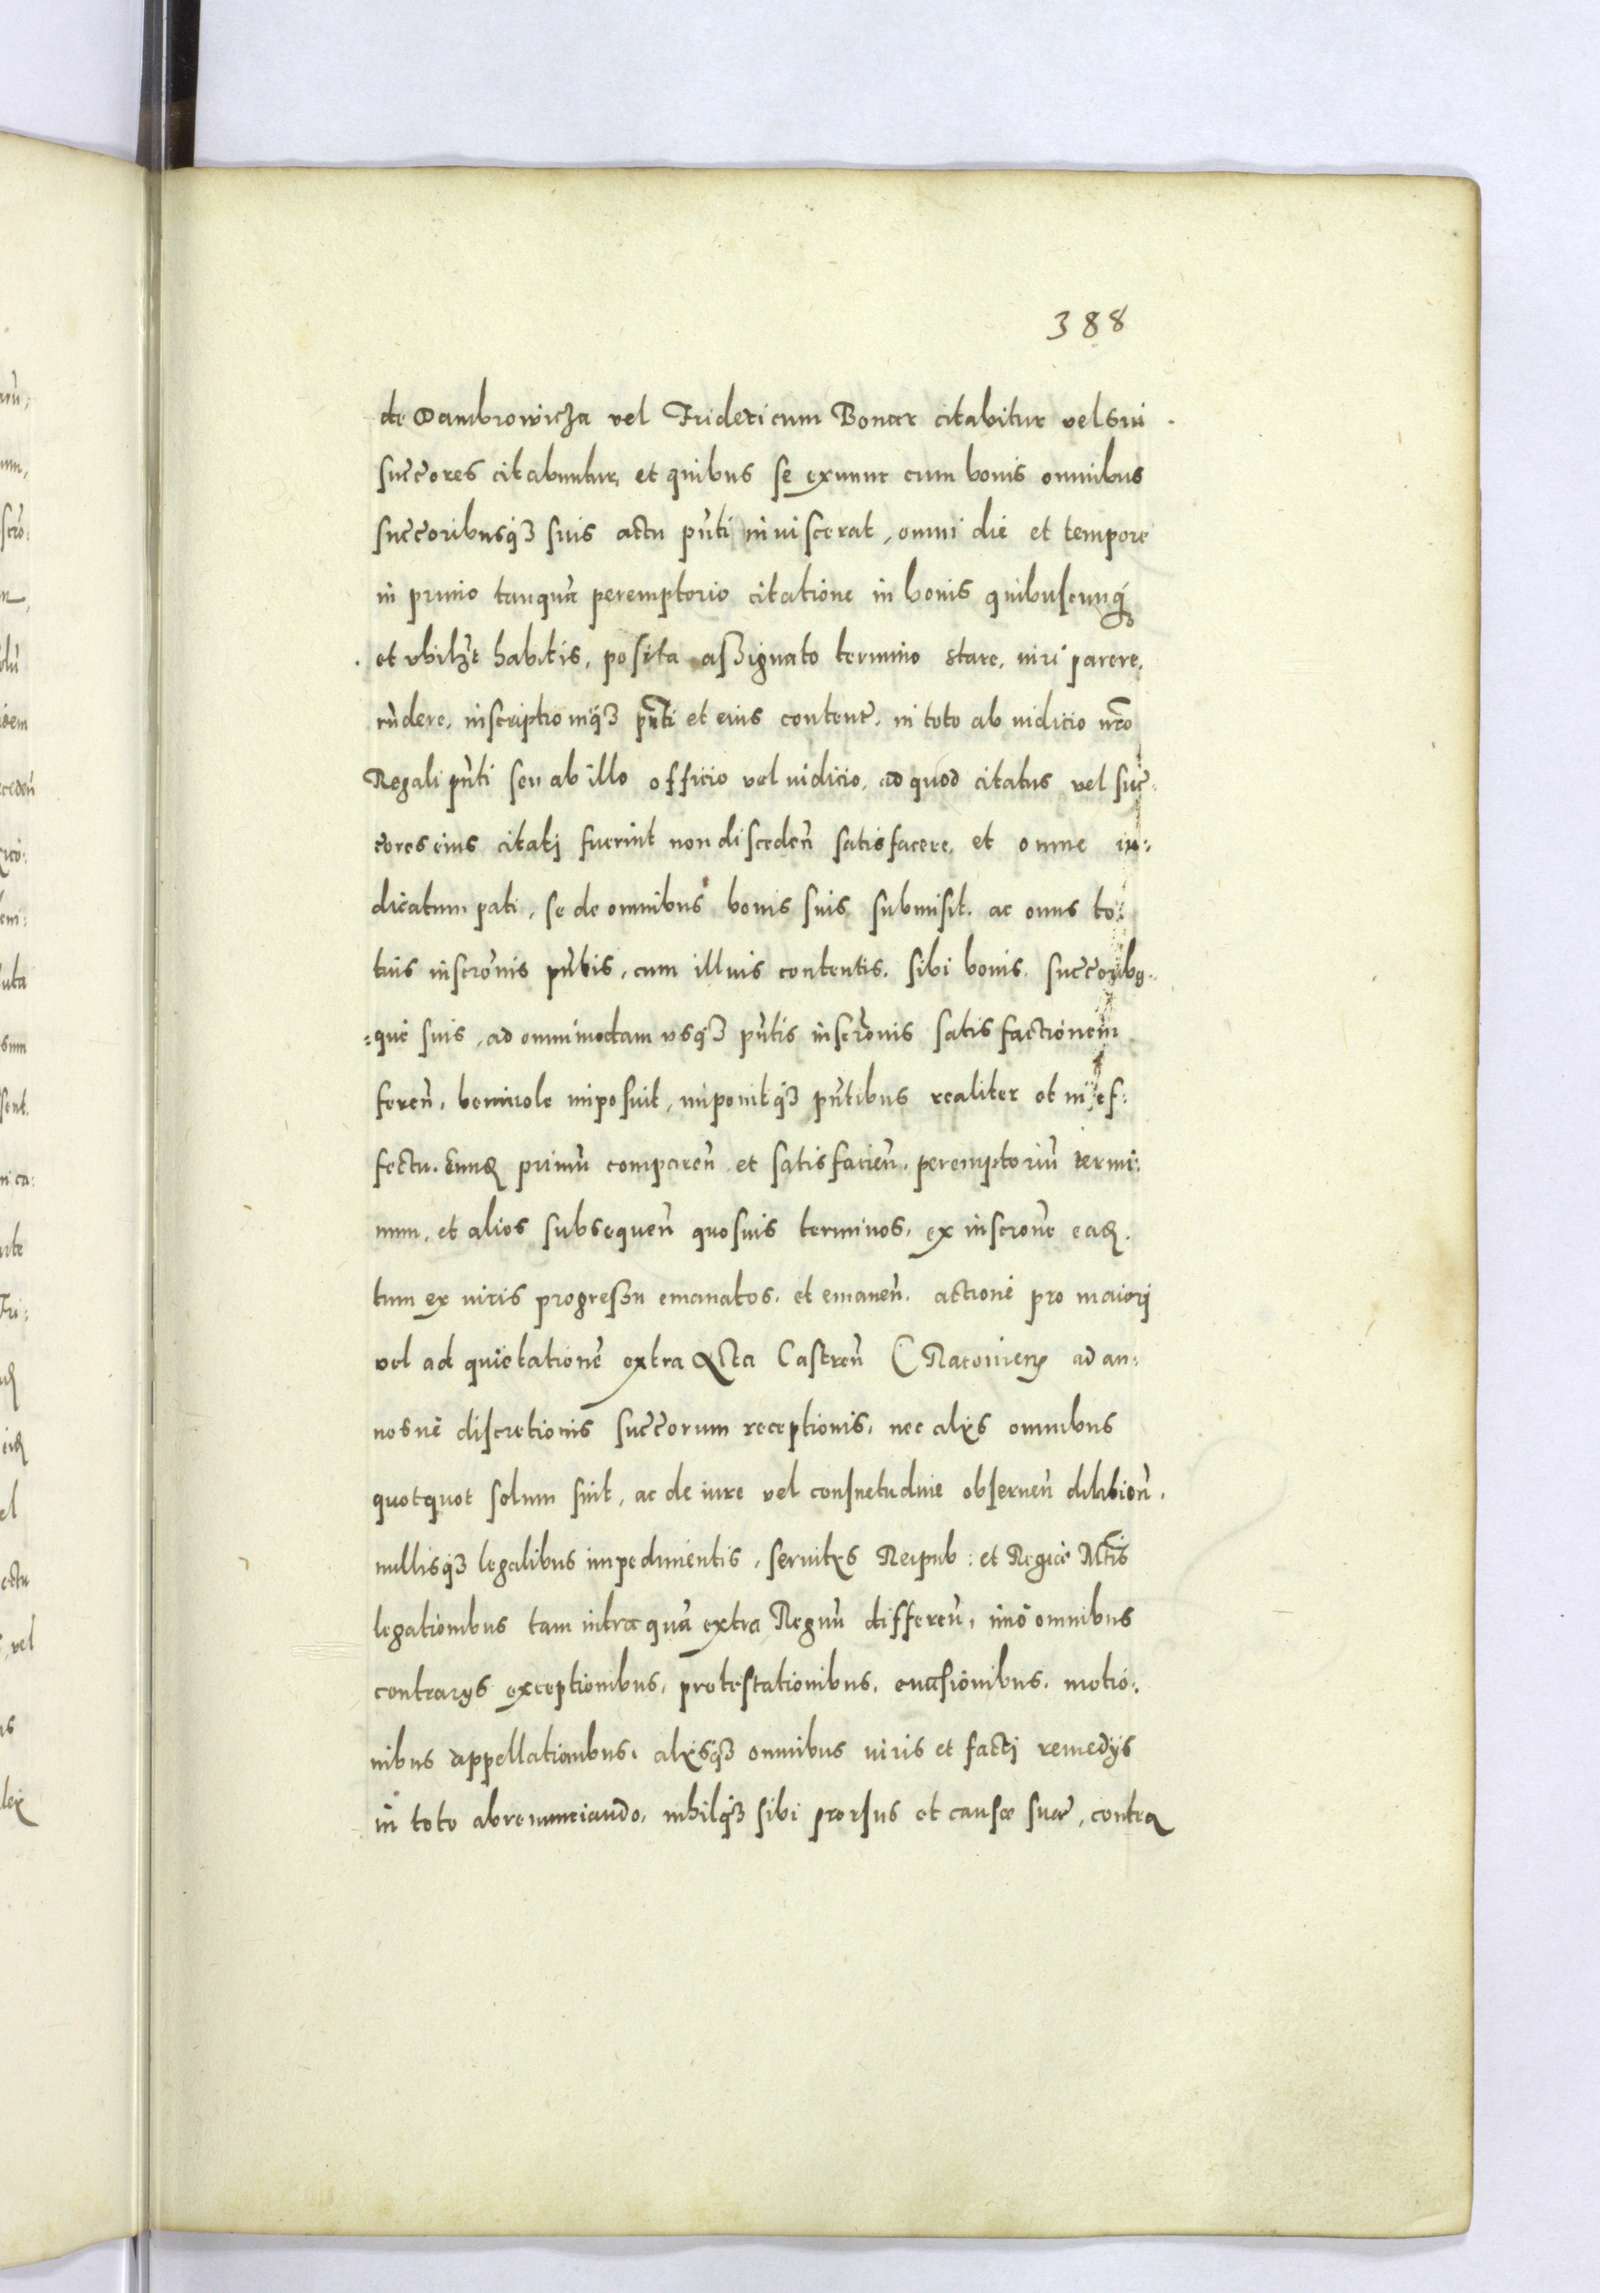 388
de Dambrowicza vel Fridericum Bonar citabitur vel sui
succ̄ores citabuntur, et quibus se exnunc cum bonis omnibus
succ̄oribusq₃ suis actu pn̄ti inviscerat, omni die et tempore
in primo tanquā peremptorio citatione in bonis quibuscunq₃
et vbilꝫt habitis, posita assignato termino stare, iuri parere,
rn̄dere, inscriptioniq₃ pn̄ti et eius content̄, in toto ab iudicio nr̄o
Regali pn̄ti seu ab illo officio vel iudicio, ad quod citatus vel suc̄-
cores eius citatj fuerint non disceden̄ satisfacere, et omne iu=
dicatum pati, se de omnibus bonis suis submisit. ac onus to:
tius inscrōnis pn̄tis, cum illius contentis, sibi bonis, succ̄oribꝫ
=que suis, ad omnimodam vsq₃ pn̄tis inscrōnis satisfactionem
feren̄, benivole imposuit, imponitq₃ pn̄tibus realiter et in ef:
fectu. Eund primū comparen̄ et satisfacien̄, peremptoriū termi:
num, et alios subsequen̄ quosuis terminos, ex inscrōne ead.
tum ex iuris progressu emanatos, et emanen̄. actione pro maiorj
vel ad quietationē extra Acta Castren̄ Cracouien̄ ad an:
nosue discretionis succ̄orum receptionis, nec alijs omnibus
quotquot solum sint, ac de iure vel consuetudine obseruen̄ dilation̄.
nullisq₃ legalibus impedimentis, seruitijs Reipub: et Regiæ Mt̄is
legationibus tam intra quā extra Regnū differen̄, imō omnibus
contrarijs exceptionibus, protestationibus, euasionibus, motio:
nibus appellationibus, alijsq₃ omnibus iuris et factj remedijs
in toto abrenunciando, nihilq₃ sibi prorsus et causæ suæ, contra